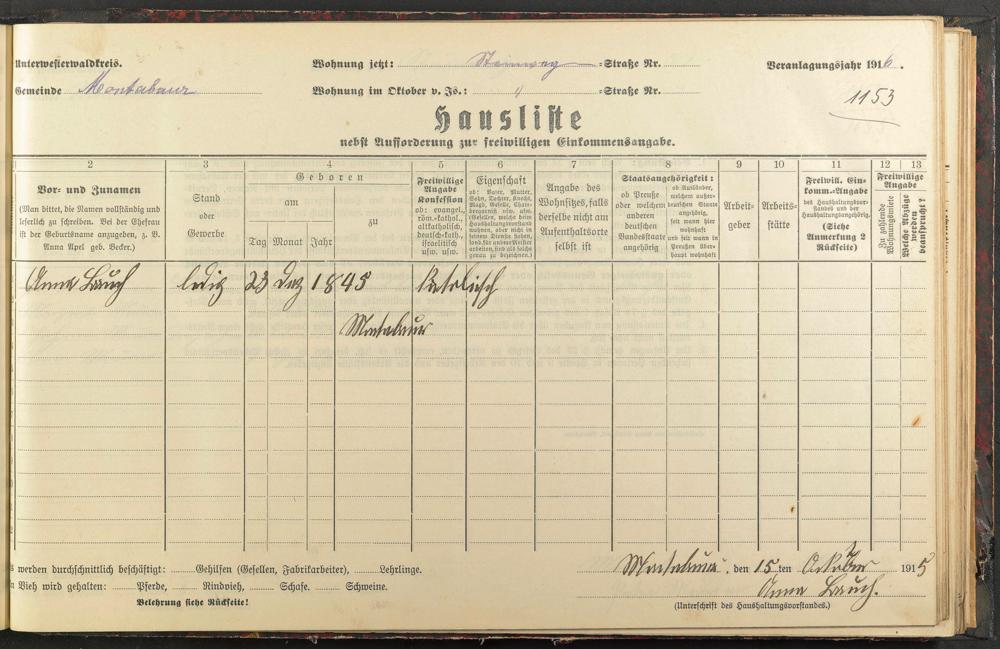 Unterwesterwaldkreis. Wohnung jetzt: Steinweg -Straße Nr. Veranlagungsjahr 1916.
Gemeinde Montabaur Wohnung im Oktober v. Js.: " -Straße Nr.
1153
Hausliste
nebst Aufforderung zur freiwilligen Einkommensangabe.
2 3 4 5 6 7 8 9 10 11 12 13
Vor- und Zunamen
(Man bittet, die Namen vollständig und
leserlich zu schreiben. Bei der Ehefrau
ist der Geburtsname anzugeben, z. B.
Anna Apel geb. Becker.)
Stand
oder
Gewerbe
Geboren
am
Tag Monat Jahr
zu
Freiwillige
Angabe
Konfession
ob: evangel.,
röm.-kathol.,
altkatholisch,
deutsch-kath.,
israelitisch
usw. usw.
Eigenschaft
ob: Vater, Mutter,
Sohn, Tochter, Knecht,
Magd, Geselle, Cham-
bregarnist usw. usw.
(Gesellen, welche beim
Haushaltungsvorstand
wohnen, aber nicht in
seinem Dienste stehen,
sind als solche
genau zu bezeichnen.)
Angabe des
Wohnsitzes, falls
derselbe nicht am
Aufenthaltsorte
selbst ist
Staatsangehörigkeit:
ob Preuße
oder welchem
anderen
deutschen
Bundesstaate
angehörig
ob Ausländer,
welchem außer-
deutschen Staate
angehörig,
seit wann hier
wohnhaft
und seit wann in
Preußen über-
haupt wohnhaft
Arbeit-
geber
Arbeits-
stätte
Freiwill. Ein-
komm.-Angabe
des Haushaltungsvor-
standes und der
Haushaltungsangehörig.
(Siehe
Anmerkung 2
Rückseite)
Freiwillige
Angabe
Zu zahlende
Wohnungsmiete
Welche Abzüge
werden
beansprucht?
Anna Lauch ledig 23 Dez 1845 katolisch
Montabaur
werden durchschnittlich beschäftigt: Gehilfen (Gesellen, Fabrikarbeiter), Lehrlinge.
Vieh wird gehalten: Pferde, Rindvieh, Schafe. Schweine.
Belehrung siehe Rückseite!
Montabaur, den 15 ten Oktober 1915
Anna Lauch.
(Unterschrift des Haushaltungsvorstandes.)